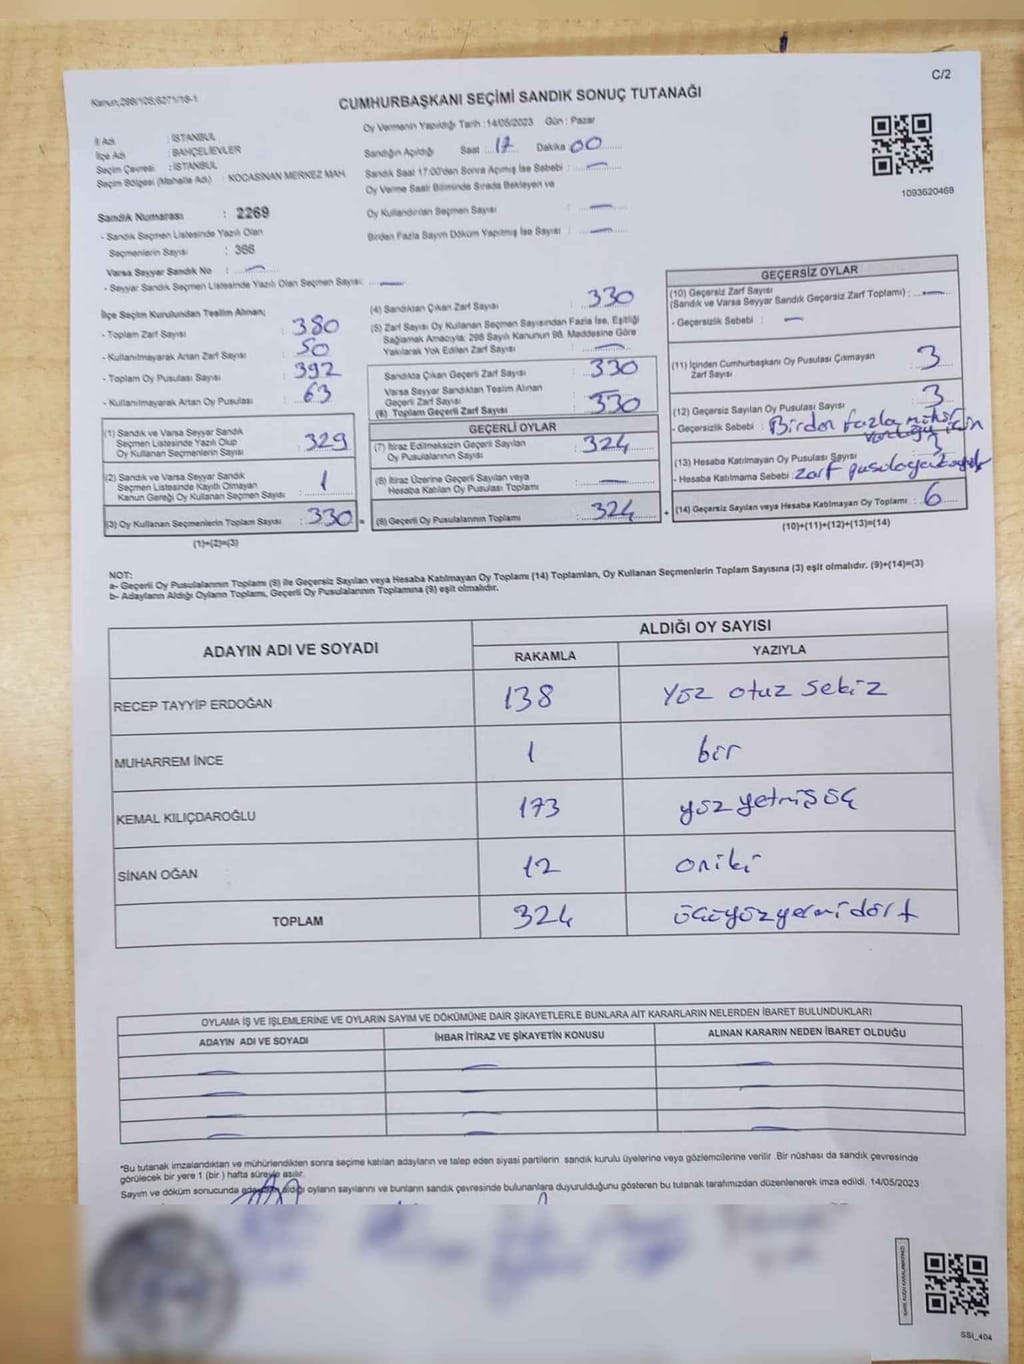 C/2
Kanun,298/105,6271/18-1
CUMHURBAŞKANI SEÇİMİ SANDIK SONUÇ TUTANAĞI
İl Adı : İSTANBUL
İlçe Adı : BAHÇELİEVLER
Seçim Çevresi : İSTANBUL
Seçim Bölgesi (Mahalle Adı) : KOCASİNAN MERKEZ MAH.
Oy Vermenin Yapıldığı Tarih : 14/05/2023 Gün : Pazar
Sandığın Açıldığı Saat 17 Dakika 00
Sandık Saat 17:00'den Sonra Açılmış İse Sebebi : —
Oy Verme Saati Bitiminde Sırada Bekleyen ve
Oy Kullandırılan Seçmen Sayısı : —
Birden Fazla Sayım Döküm Yapılmış İse Sayısı : —
1093620468
Sandık Numarası : 2269
- Sandık Seçmen Listesinde Yazılı Olan
Seçmenlerin Sayısı : 366
Varsa Seyyar Sandık No : —
- Seyyar Sandık Seçmen Listesinde Yazılı Olan Seçmen Sayısı: —
İlçe Seçim Kurulundan Teslim Alınan;
- Toplam Zarf Sayısı : 380
- Kullanılmayarak Artan Zarf Sayısı : 50
- Toplam Oy Pusulası Sayısı : 392
- Kullanılmayarak Artan Oy Pusulası : 63
(1) Sandık ve Varsa Seyyar Sandık
Seçmen Listesinde Yazılı Olup
Oy Kullanan Seçmenlerin Sayısı : 329
(2) Sandık ve Varsa Seyyar Sandık
Seçmen Listesinde Kayıtlı Olmayan
Kanun Gereği Oy Kullanan Seçmen Sayısı : 1
(3) Oy Kullanan Seçmenlerin Toplam Sayısı : 330
(1)+(2)=(3)
(4) Sandıktan Çıkan Zarf Sayısı : 330
(5) Zarf Sayısı Oy Kullanan Seçmen Sayısından Fazla İse, Eşitliği
Sağlamak Amacıyla; 298 Sayılı Kanunun 98. Maddesine Göre
Yakılarak Yok Edilen Zarf Sayısı : —
Sandıkta Çıkan Geçerli Zarf Sayısı : 330
Varsa Seyyar Sandıktan Teslim Alınan
Geçerli Zarf Sayısı : —
(6) Toplam Geçerli Zarf Sayısı : 330
GEÇERLİ OYLAR
(7) İtiraz Edilmeksizin Geçerli Sayılan
Oy Pusulalarının Sayısı : 324
(8) İtiraz Üzerine Geçerli Sayılan veya
Hesaba Katılan Oy Pusulası Toplamı : —
(9) Geçerli Oy Pusulalarının Toplamı : 324
GEÇERSİZ OYLAR
(10) Geçersiz Zarf Sayısı
(Sandık ve Varsa Seyyar Sandık Geçersiz Zarf Toplamı) : —
- Geçersizlik Sebebi : —
(11) İçinden Cumhurbaşkanı Oy Pusulası Çıkmayan
Zarf Sayısı : 3
(12) Geçersiz Sayılan Oy Pusulası Sayısı : 3
- Geçersizlik Sebebi : Birden fazla mühür
için
(13) Hesaba Katılmayan Oy Pusulası Sayısı :
- Hesaba Katılmama Sebebi : zarf
(14) Geçersiz Sayılan veya Hesaba Katılmayan Oy Toplamı : 6
(10)+(11)+(12)+(13)=(14)
NOT:
a- Geçerli Oy Pusulalarının Toplamı (9) ile Geçersiz Sayılan veya Hesaba Katılmayan Oy Toplamı (14) Toplamları, Oy Kullanan Seçmenlerin Toplam Sayısına (3) eşit olmalıdır. (9)+(14)=(3)
b- Adayların Aldığı Oyların Toplamı, Geçerli Oy Pusulalarının Toplamına (9) eşit olmalıdır.
ADAYIN ADI VE SOYADI ALDIĞI OY SAYISI
RAKAMLA YAZIYLA
RECEP TAYYİP ERDOĞAN 138 yöz otuz sekiz
MUHARREM İNCE 1 bir
KEMAL KILIÇDAROĞLU 173 yöz yetmiş öç
SİNAN OĞAN 12 oniki
TOPLAM 324 öçyözyirmidört
OYLAMA İŞ VE İŞLEMLERİNE VE OYLARIN SAYIM VE DÖKÜMÜNE DAİR ŞİKAYETLERLE BUNLARA AİT KARARLARIN NELERDEN İBARET BULUNDUKLARI
ADAYIN ADI VE SOYADI İHBAR İTİRAZ VE ŞİKAYETİN KONUSU ALINAN KARARIN NEDEN İBARET OLDUĞU
*Bu tutanak imzalandıktan ve mühürlendikten sonra seçime katılan adayların ve talep eden siyasi partilerin sandık kurulu üyelerine veya gözlemcilerine verilir .Bir nüshası da sandık çevresinde
görülecek bir yere 1 (bir ) hafta süreyle asılır.
Sayım ve döküm sonucunda adayların aldığı oyların sayılarını ve bunların sandık çevresinde bulunanlara duyurulduğunu gösteren bu tutanak tarafımızdan düzenlenerek imza edildi. 14/05/2023
SSI_404